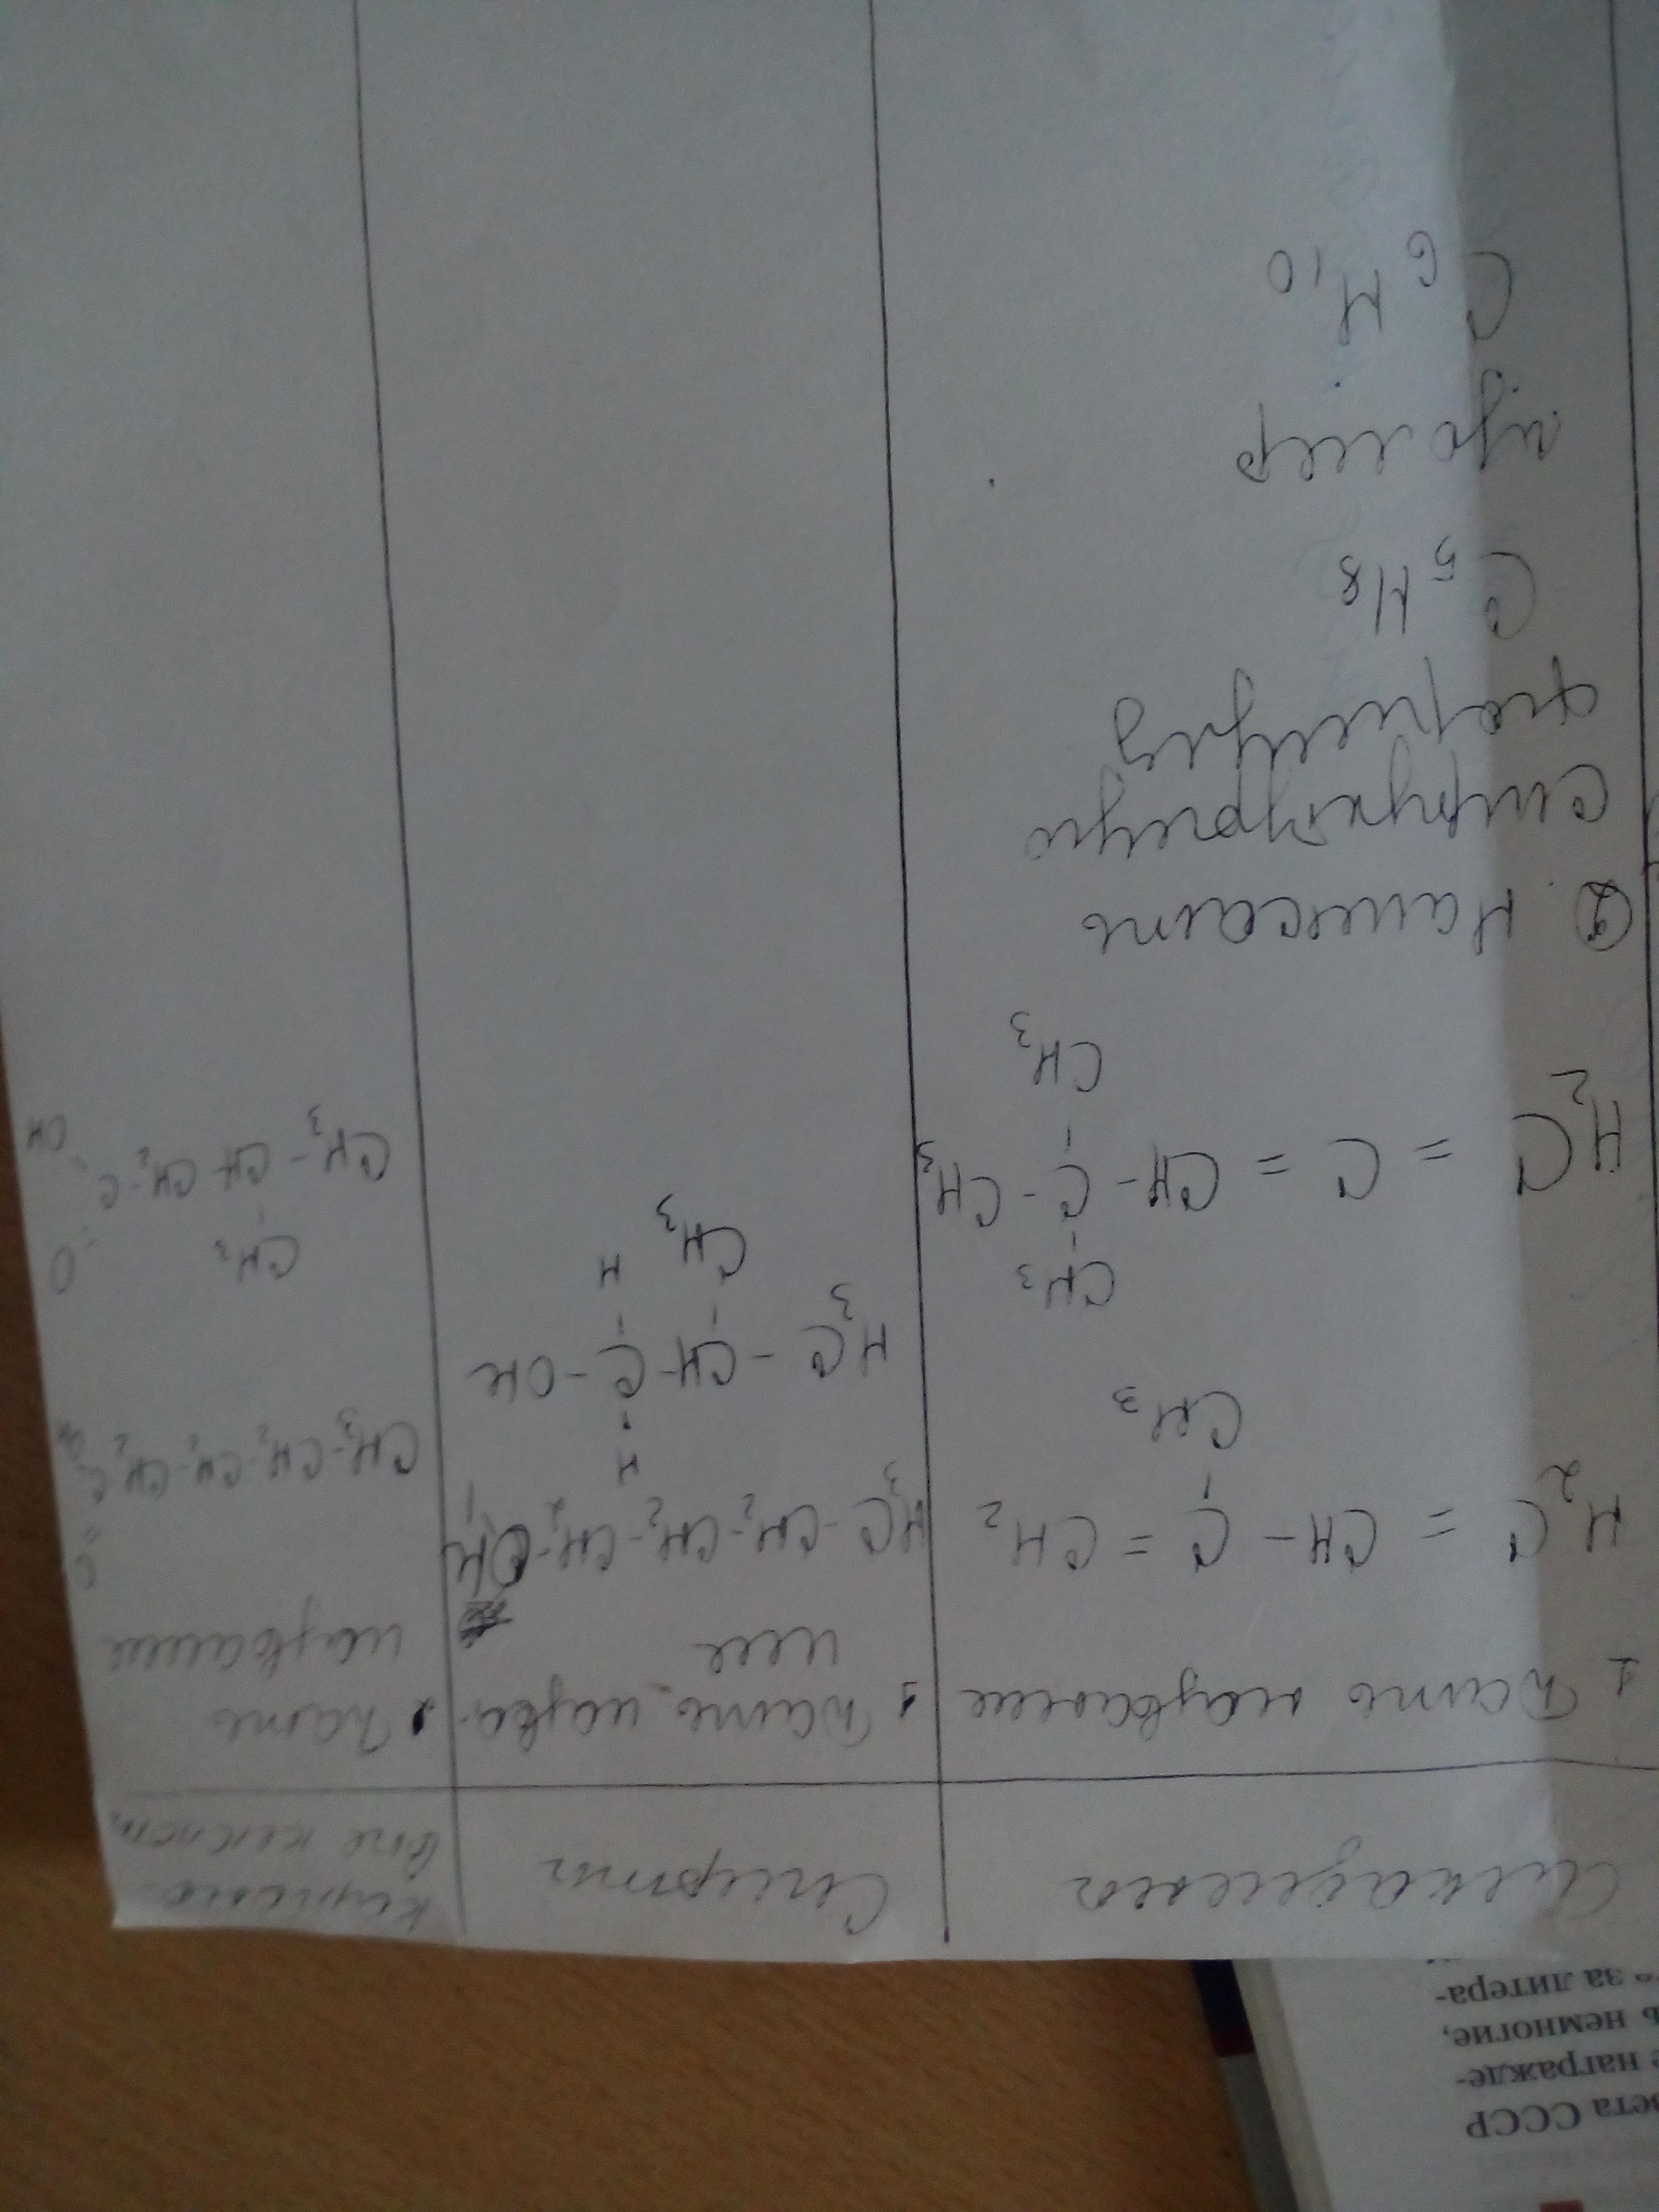 Алкадиены
1 Дать название
H₂C = CH - C = CH₂
CH₃
CH₃
H₂C = C = CH - C - CH₃
CH₃
② Написать
структурную
формулу
C₅H₈
изомер
C₆H₁₀
Спирты
1 Дать назва-
ние
H₃C - CH₂ - CH₂ - CH₂ - OH
H
H₃C - CH - C - OH
CH₃ H
Карбоно-
вые кислот
1 Дать
название
O
CH₃ - CH₂ - CH₂ - CH₂ - C - OH
CH₃ O
CH₃ - CH CH₂ - C - OH
вета СССР
е награжде-
ь немногие,
за литера-